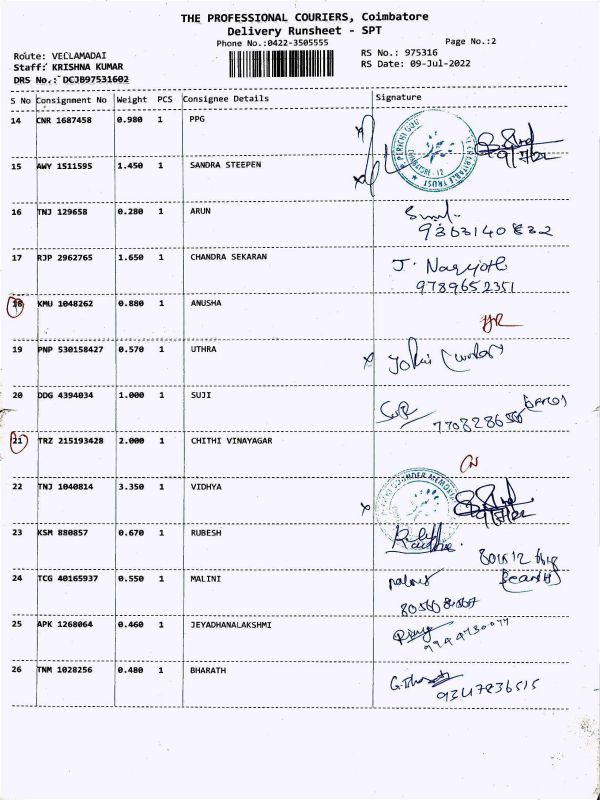 THE PROFESSIONAL COURIERS, Coimbatore
Delivery Runsheet - SPT
Phone No.:0422-3505555
Page No.:2
Route: VECLAMADAI
RS No.: 975316
Staff: KRISHNA KUMAR
RS Date: 09-Jul-2022
DRS No.: DCJB97531602
S No Consignment No Weight PCS Consignee Details Signature
14 CNR 1687458 0.980 1 PPG
15 AWY 1511595 1.450 1 SANDRA STEEPEN
16 TNJ 129658 0.280 1 ARUN
9363140832
17 RJP 2962765 1.650 1 CHANDRA SEKARAN
9789652351
18 KMU 1048262 0.880 1 ANUSHA
19 PNP 530158427 0.570 1 UTHRA
20 DDG 4394034 1.000 1 SUJI
21 TRZ 215193428 2.000 1 CHITHI VINAYAGAR
22 TNJ 1040814 3.350 1 VIDHYA
23 KSM 880857 0.670 1 RUBESH
24 TCG 40165937 0.550 1 MALINI
25 APK 1268064 0.460 1 JEYADHANALAKSHMI
26 TNM 1028256 0.480 1 BHARATH
9347836515